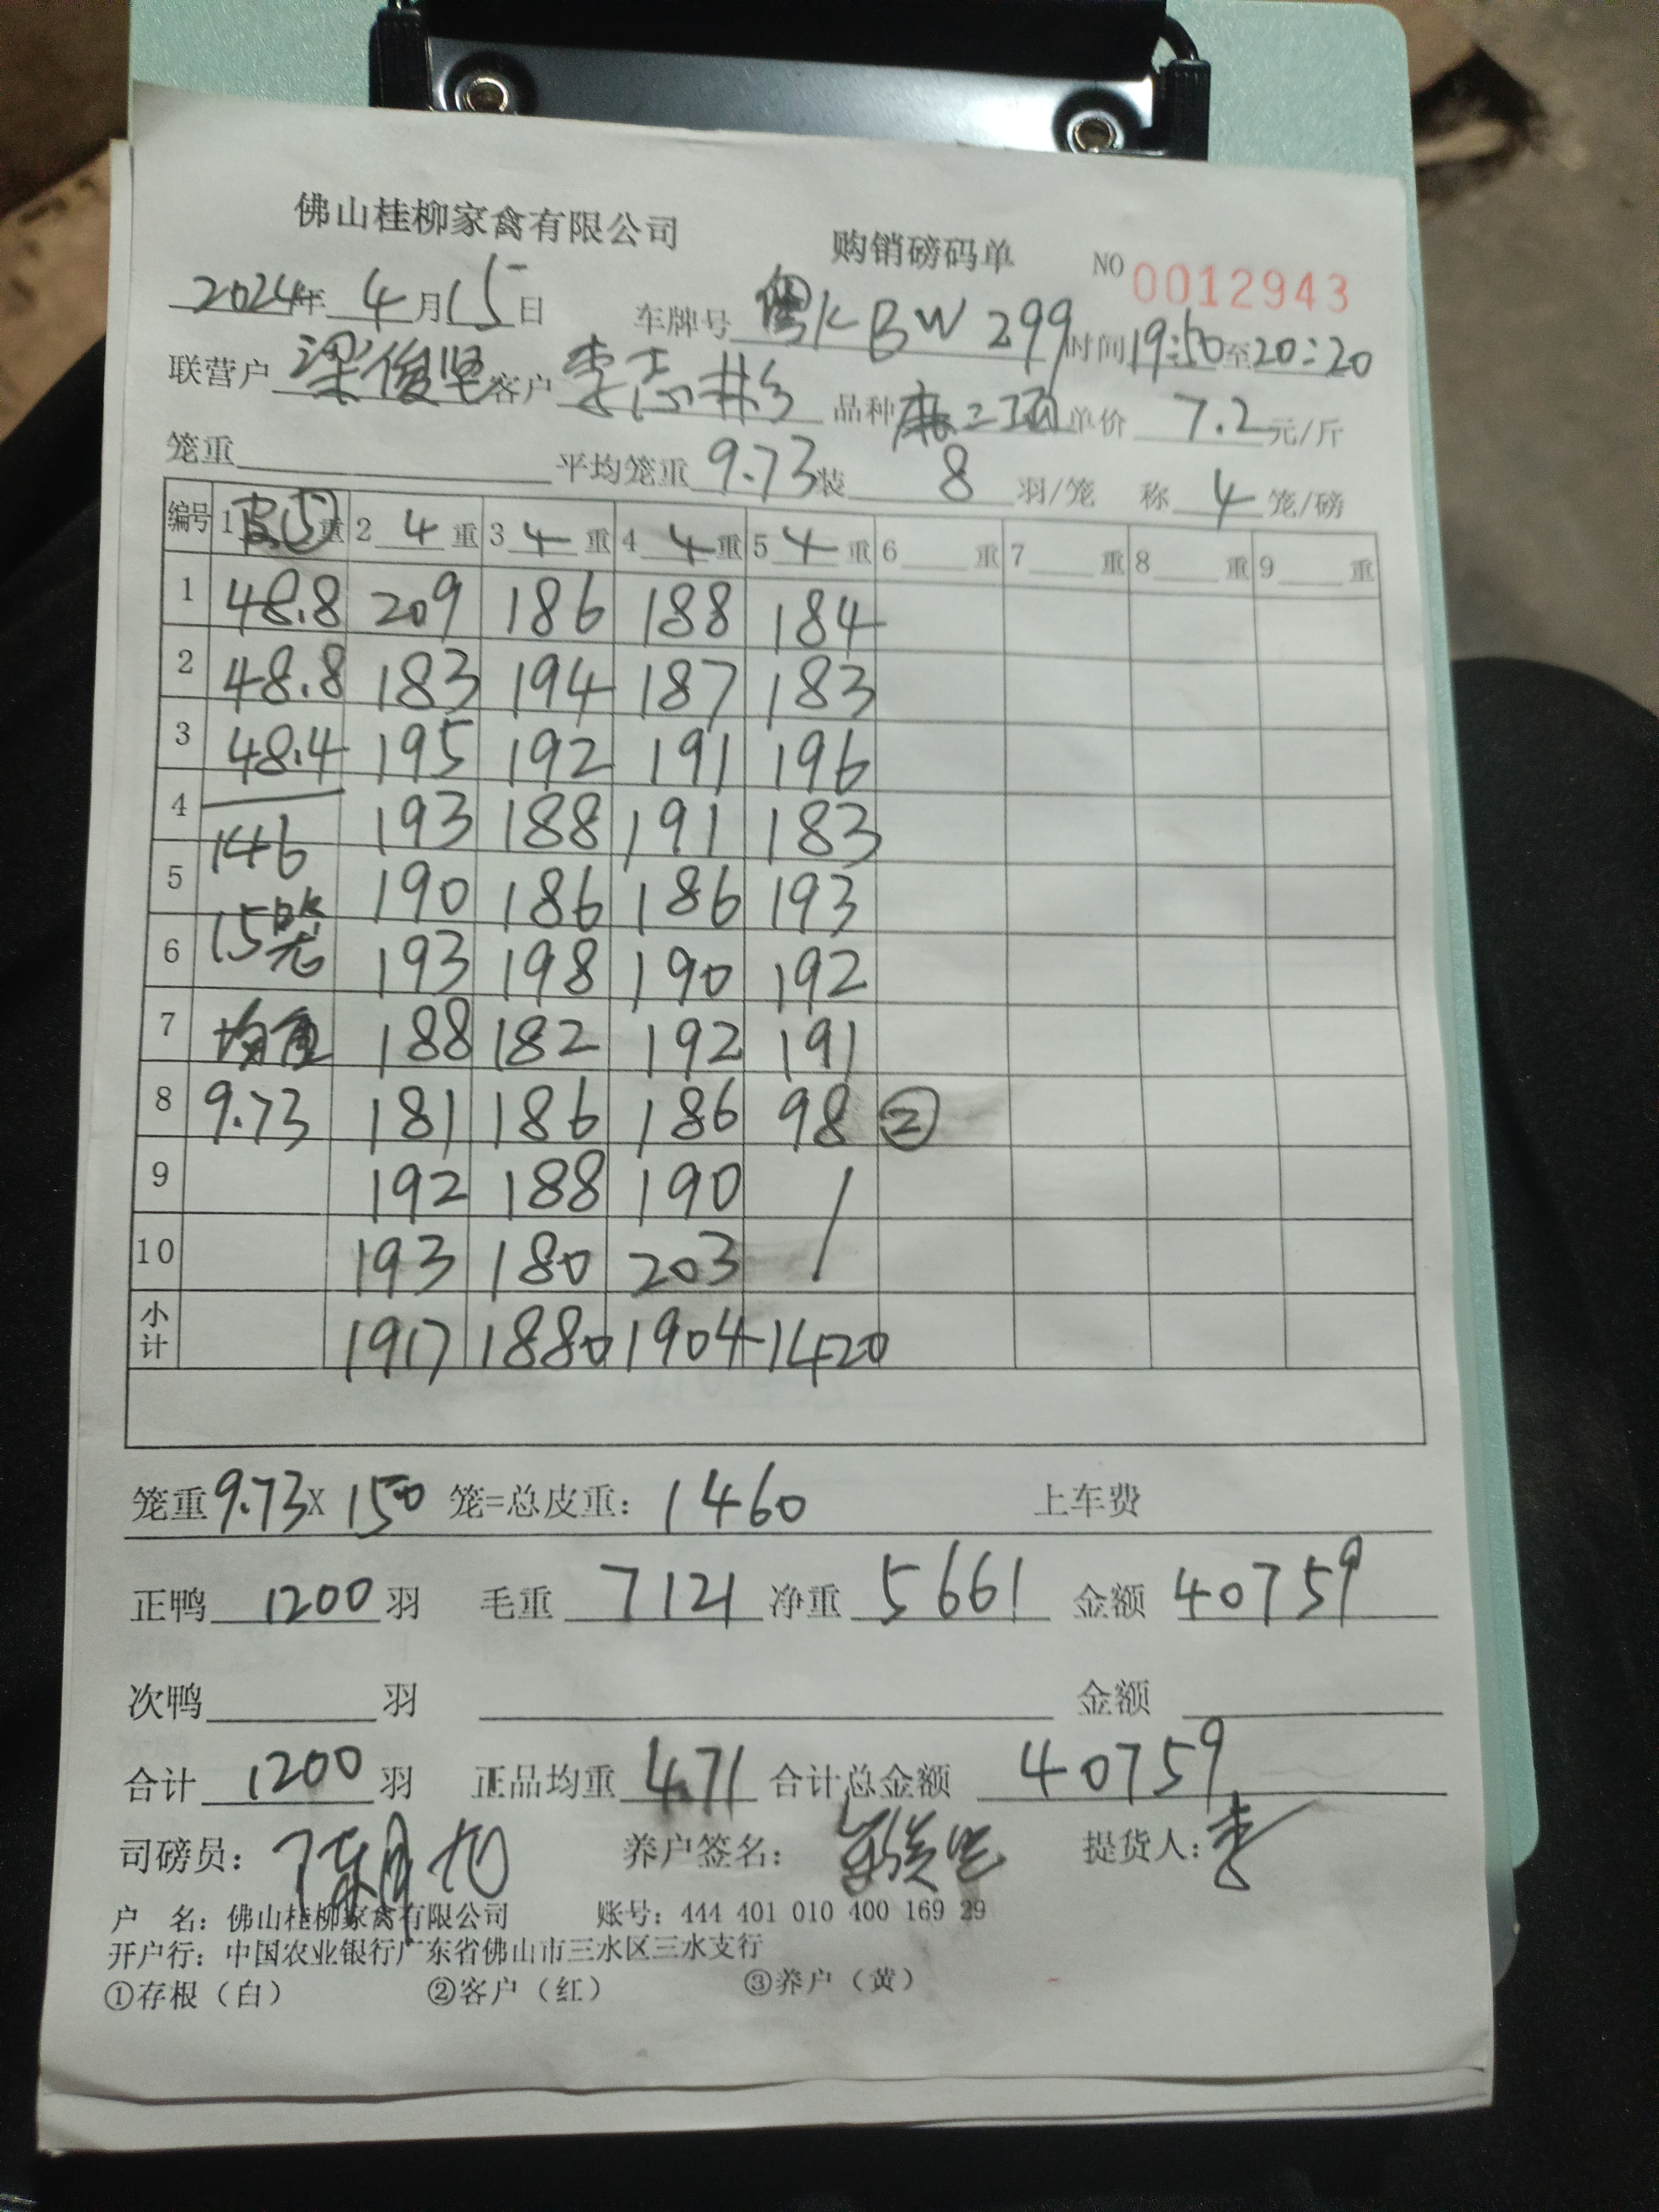 佛山桂柳家禽有限公司 购销磅码单 NO 0012943
2024年 4月15日 车牌号 粤KBW299 时间19:50至20:20
联营户 梁俊坚 客户 李志彬 品种 麻二项 单价 7.2 元/斤
笼重 平均笼重 9.73 装 8 羽/笼 称 4 笼/磅
编号 1 皮⑤ 重 2 4 重 3 4 重 4 4 重 5 4 重 6 重 7 重 8 重 9 重
1 48.8 209 186 188 184
2 48.8 183 194 187 183
3 48.4 195 192 191 196
4 146 193 188 191 183
5 15笼 190 186 186 193
6 193 198 190 192
7 均重 188 182 192 191
8 9.73 181 186 186 98 ②
9 192 188 190 /
10 193 180 203
小计 1917 1880 1904 1420
笼重 9.73 X 150 笼=总皮重: 1460 上车费
正鸭 1200 羽 毛重 7121 净重 5661 金额 40759
次鸭 羽 金额
合计 1200 羽 正品均重 4.71 合计总金额 40759
司磅员: 养户签名: 提货人: 李
户 名: 佛山桂柳家禽有限公司 账号: 444 401 010 400 169 29
开户行: 中国农业银行广东省佛山市三水区三水支行
①存根(白) ②客户(红) ③养户(黄)